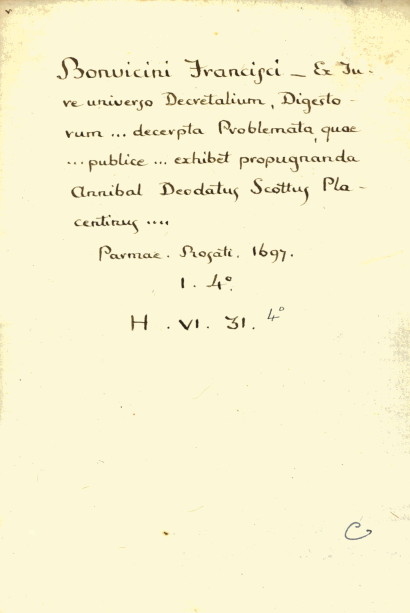 Bonvicini Francisci _ Ex Ju-
re universo Decretalium, Digesto-
rum ... decerpta Problemata, quae
... publice ... exhibet propugnanda
Annibal Deodatus Scottus Pla-
centinus ....
Parmae. Rosati. 1697.
1. 4°.
H. VI. 31. 4°
C